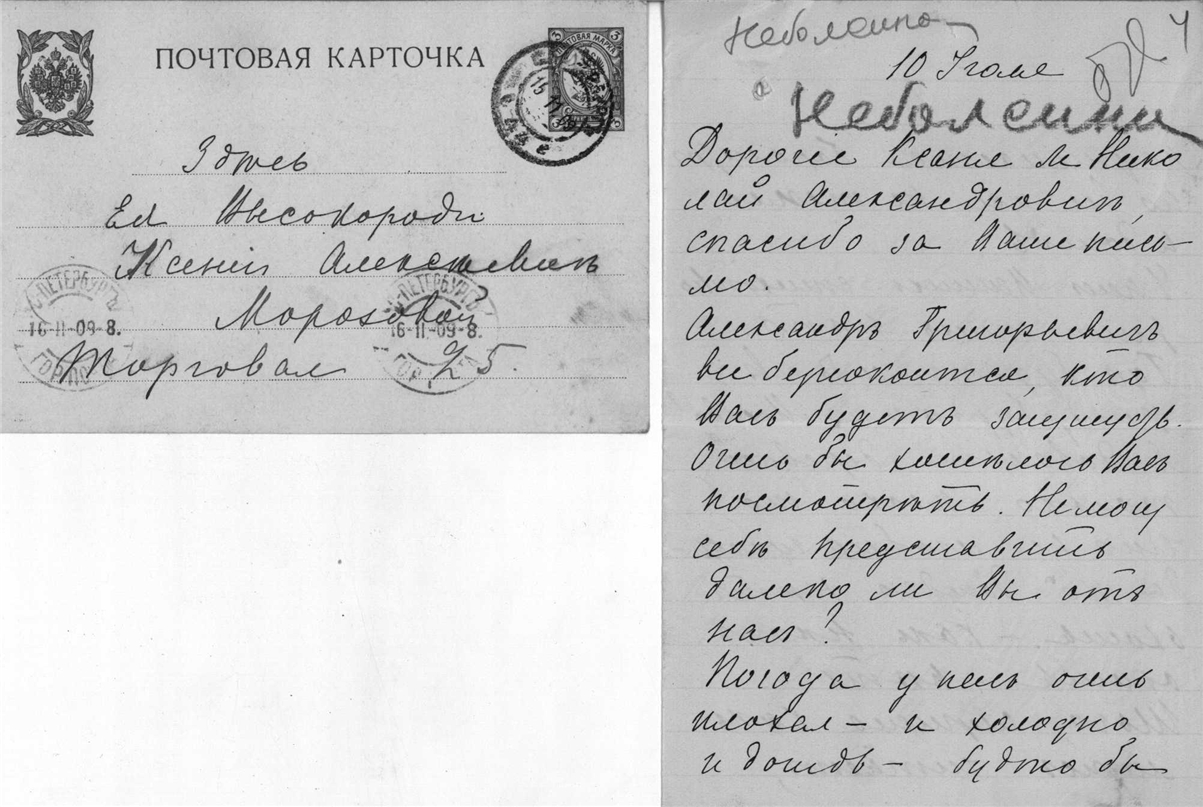 ПОЧТОВАЯ КАРТОЧКА
3 ПОЧТОВАЯ МАРКА 3
Здѣсь
Ея Высокородiю
Ксенiи Алексѣевнѣ
Морозовой
Торговая 25.
С-ПЕТЕРБУРГЪ
16-II-09-8.
С-ПЕТЕРБУРГЪ
16-II-09-8.
Неболсина
4
10 Iюля
Неболсини
Дорогіе Ксанія и Нико
лай Александровичъ,
спасибо за Ваше пись-
мо.
Александръ Григорьевичъ
все безпокоится, кто
Васъ будетъ защищать.
Очень бы хотѣлось Васъ
посмотрѣть. Не могу
себѣ представить
далеко ли Вы отъ
насъ?
Погода у насъ очень
плохая – и холодно
и дождь – будто бы